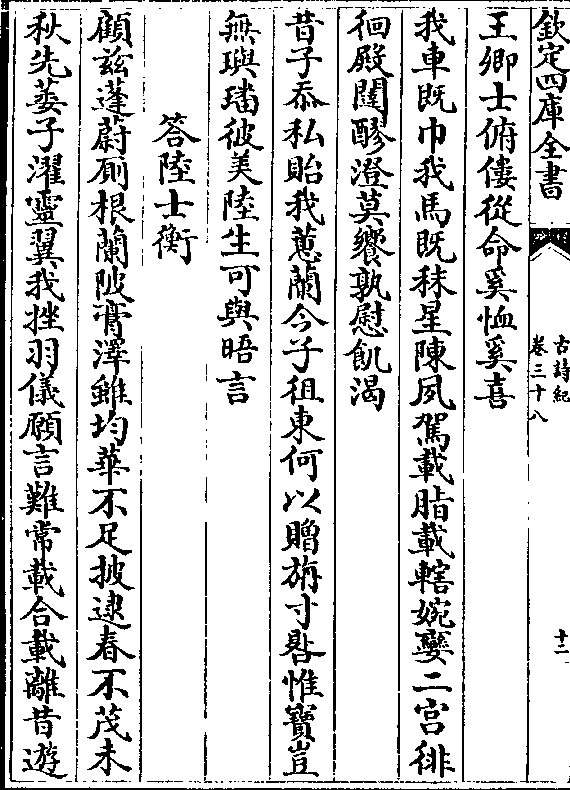 欽定四庫全書
古詩紀
卷三十八
十二
王卿士俯僂從命奚恤奚喜
我車既巾我馬既秣星陳夙駕載脂載轄婉孌二宮徘
徊殿闥醪澄莫饗孰慰飢渴
昔子忝私貽我蕙蘭今子徂東何以贈旃寸晷惟寶豈
無璵璠彼美陸生可與晤言
答陸士衡
顧茲蓬蔚厠根蘭陂膏澤雖均華不足披逮春不茂未
秋先萎子濯靈翼我挫羽儀願言難常載合載離昔遊